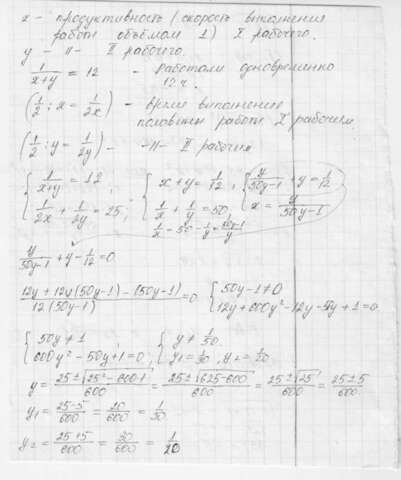 x - продуктивность (скорость выполнения
работы объёмом 1) I рабочего.
y - -11- II рабочего.
1/(x+y) = 12 - Работали одновременно
12 ч.
(1/2 : x = 1/2x) - Время выполнения
половины работы I рабочим
(1/2 : y = 1/2y) - -11- II рабочим
{ 1/(x+y) = 12, { x + y = 1/12, { y/(50y-1) + y = 1/12
{ 1/2x + 1/2y = 25, { 1/x + 1/y = 50, { x = y/(50y-1)
1/x = 50 - 1/y = (50y-1)/y
y/(50y-1) + y - 1/12 = 0
(12y + 12y(50y-1) - (50y-1))/(12(50y-1)) = 0 { 50y-1≠0
{ 12y + 600y² - 12y - 50y + 1 = 0
{ 50y ≠ 1, { y ≠ 1/50,
{ 600y² - 50y + 1 = 0, { y1 = 1/30, y2 = 1/20,
y = (25 ± √(25² - 600·1))/600 = (25 ± √(625-600))/600 = (25 ± √25)/600 = (25 ± 5)/600
y1 = (25-5)/600 = 20/600 = 1/30
y2 = (25+5)/600 = 30/600 = 1/20